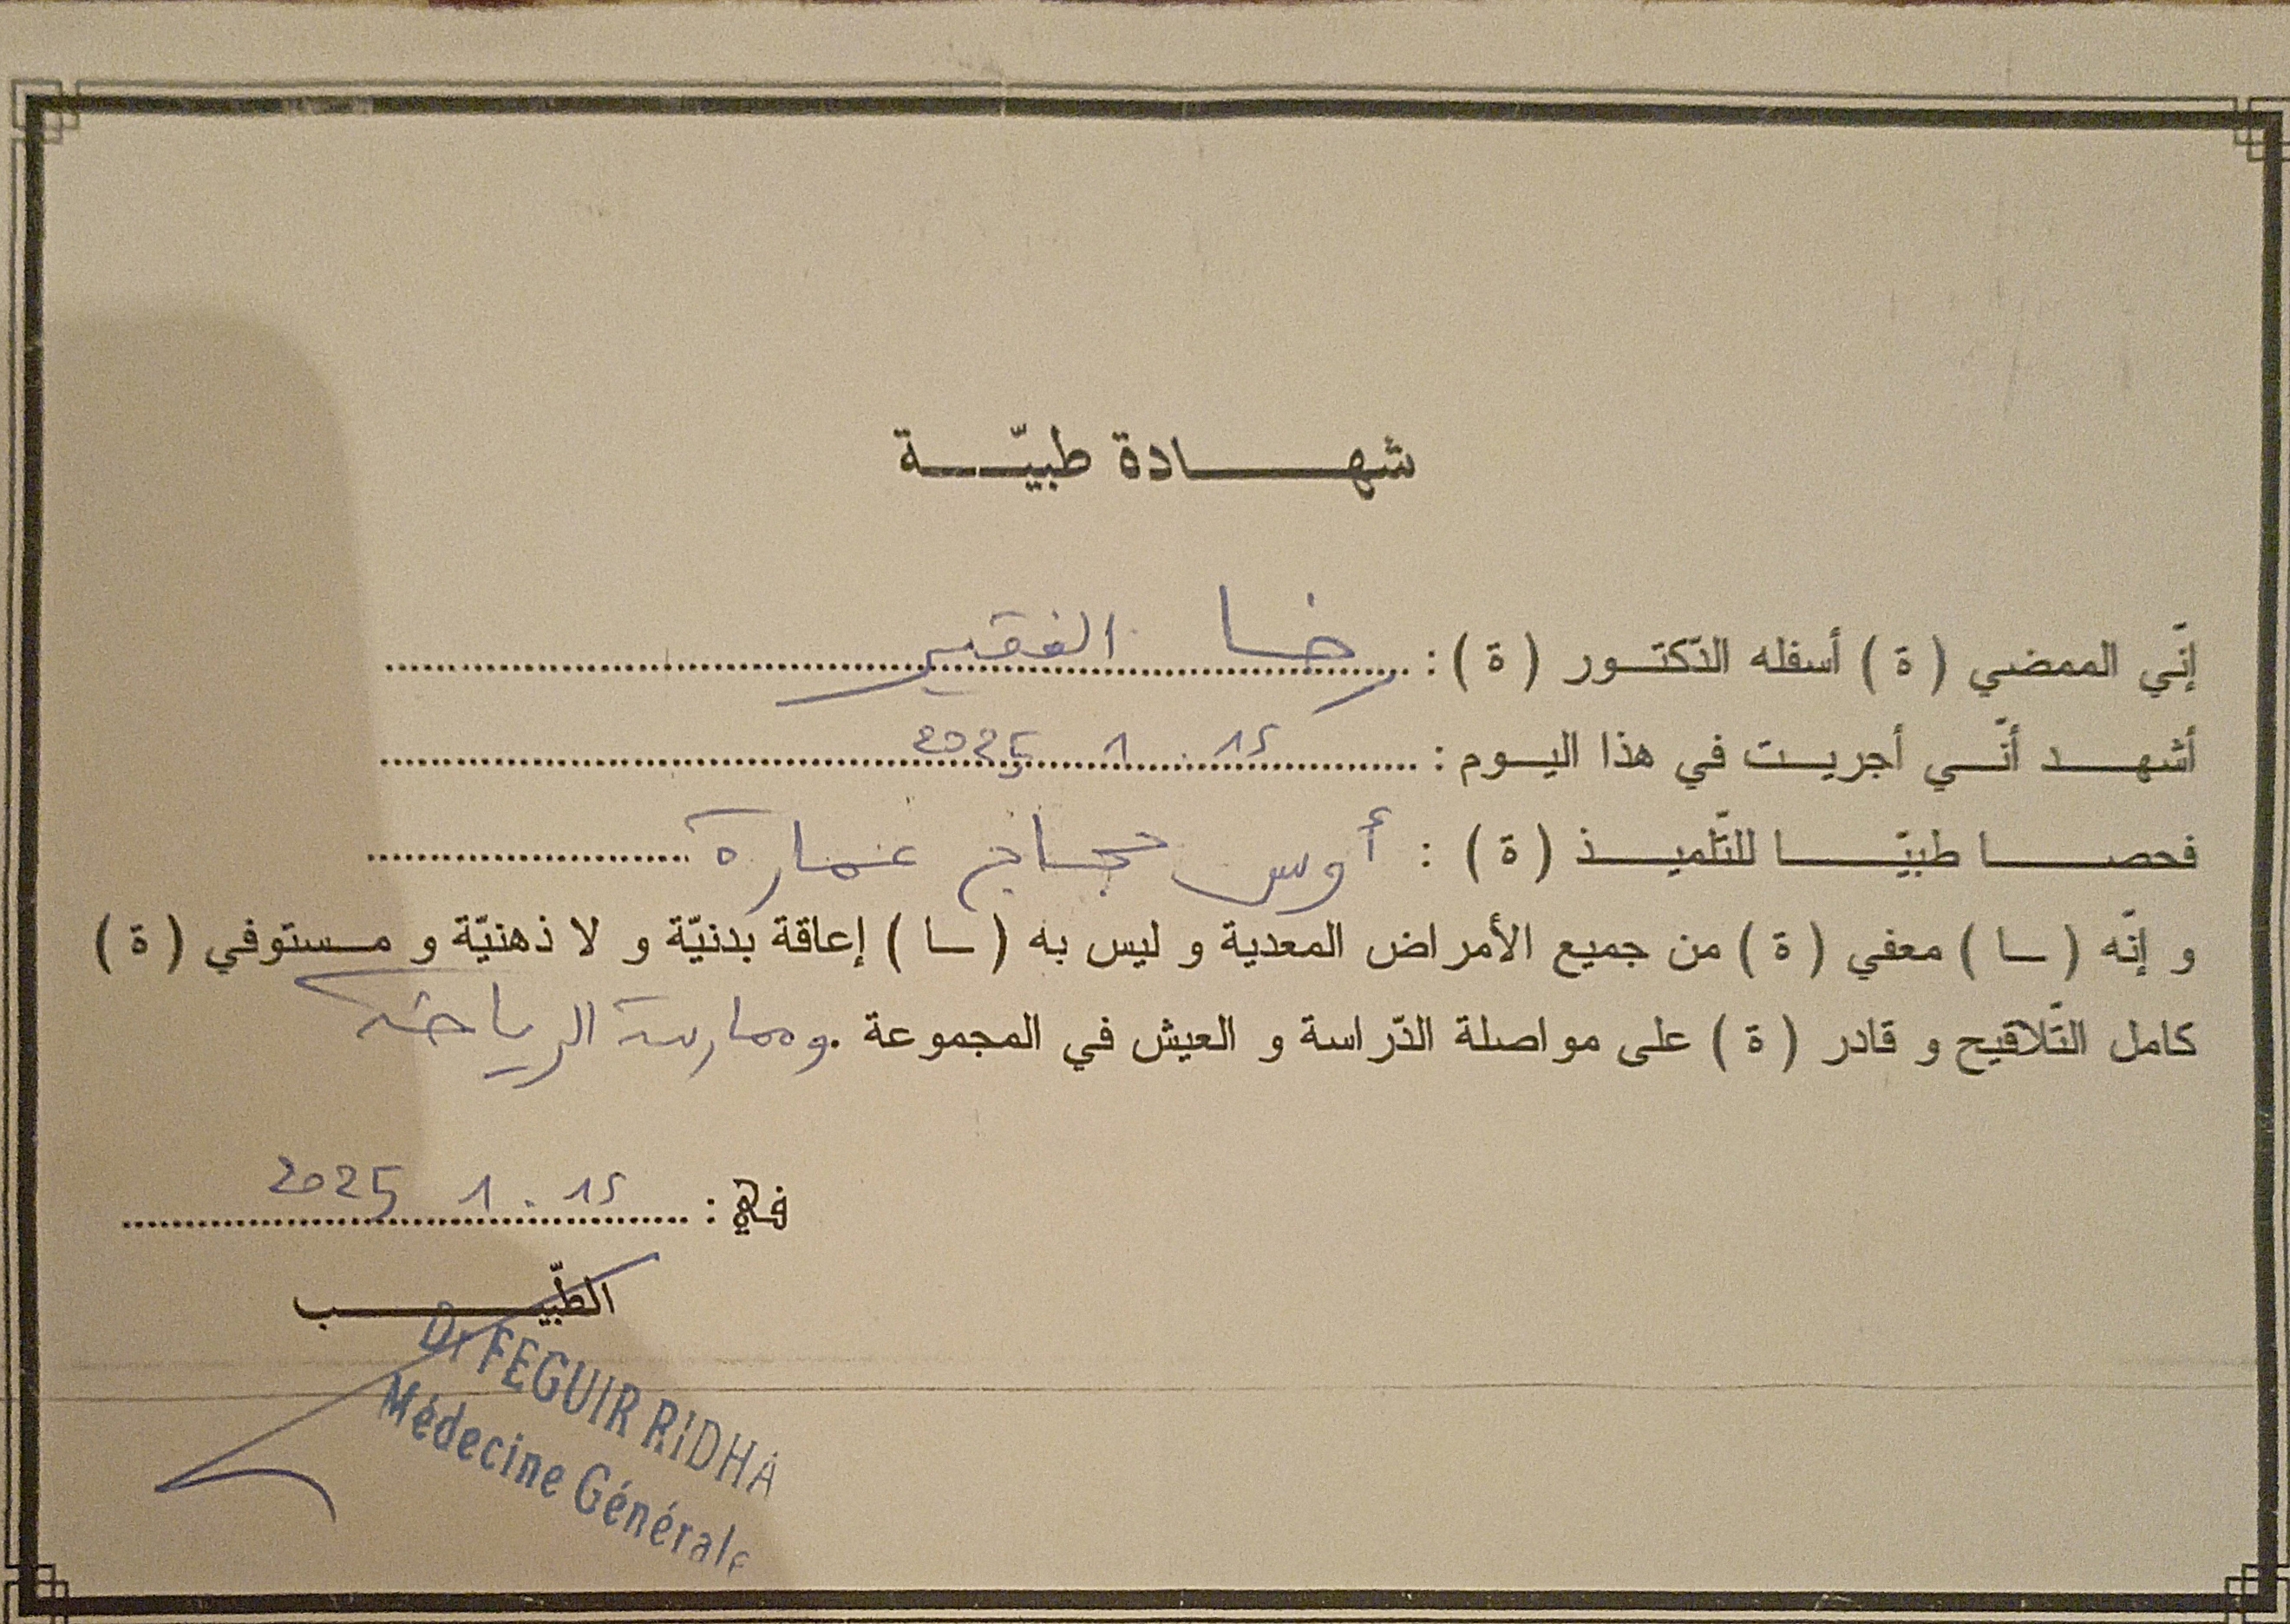 شهادة طبيّة
إنّي الممضي ( ة ) أسفله الدّكتور ( ة ) : رضا الفقير
أشهد أنّي أجريت في هذا اليوم : 15 . 1 2025
فحصا طبيّا للتّلميذ ( ة ) : أوس حجاج عمارة
و إنّه ( ـا ) معفي ( ة ) من جميع الأمراض المعدية و ليس به ( ـا ) إعاقة بدنيّة و لا ذهنيّة و مستوفي ( ة )
كامل التّلاقيح و قادر ( ة ) على مواصلة الدّراسة و العيش في المجموعة . وممارسة الرياضة
في : 15 . 1 2025
الطّبيب
Dr FEGUIR RIDHA
Médecine Générale